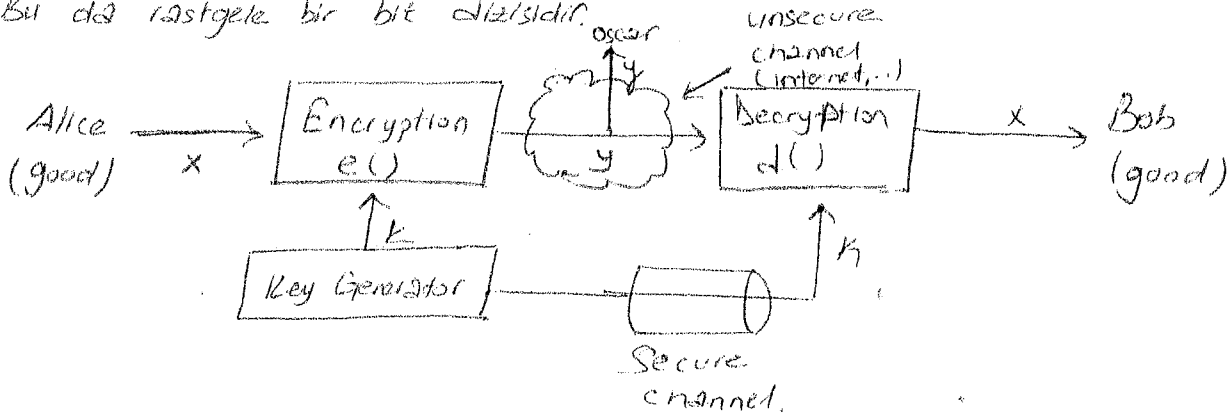 Bu da rastgele bir bit dizisidir.
oscar
y
unsecure
channel
(internet,..)
Alice
(good)
x
Encryption
e()
y
Decryption
d()
x
Bob
(good)
k
k
Key Generator
Secure
channel.